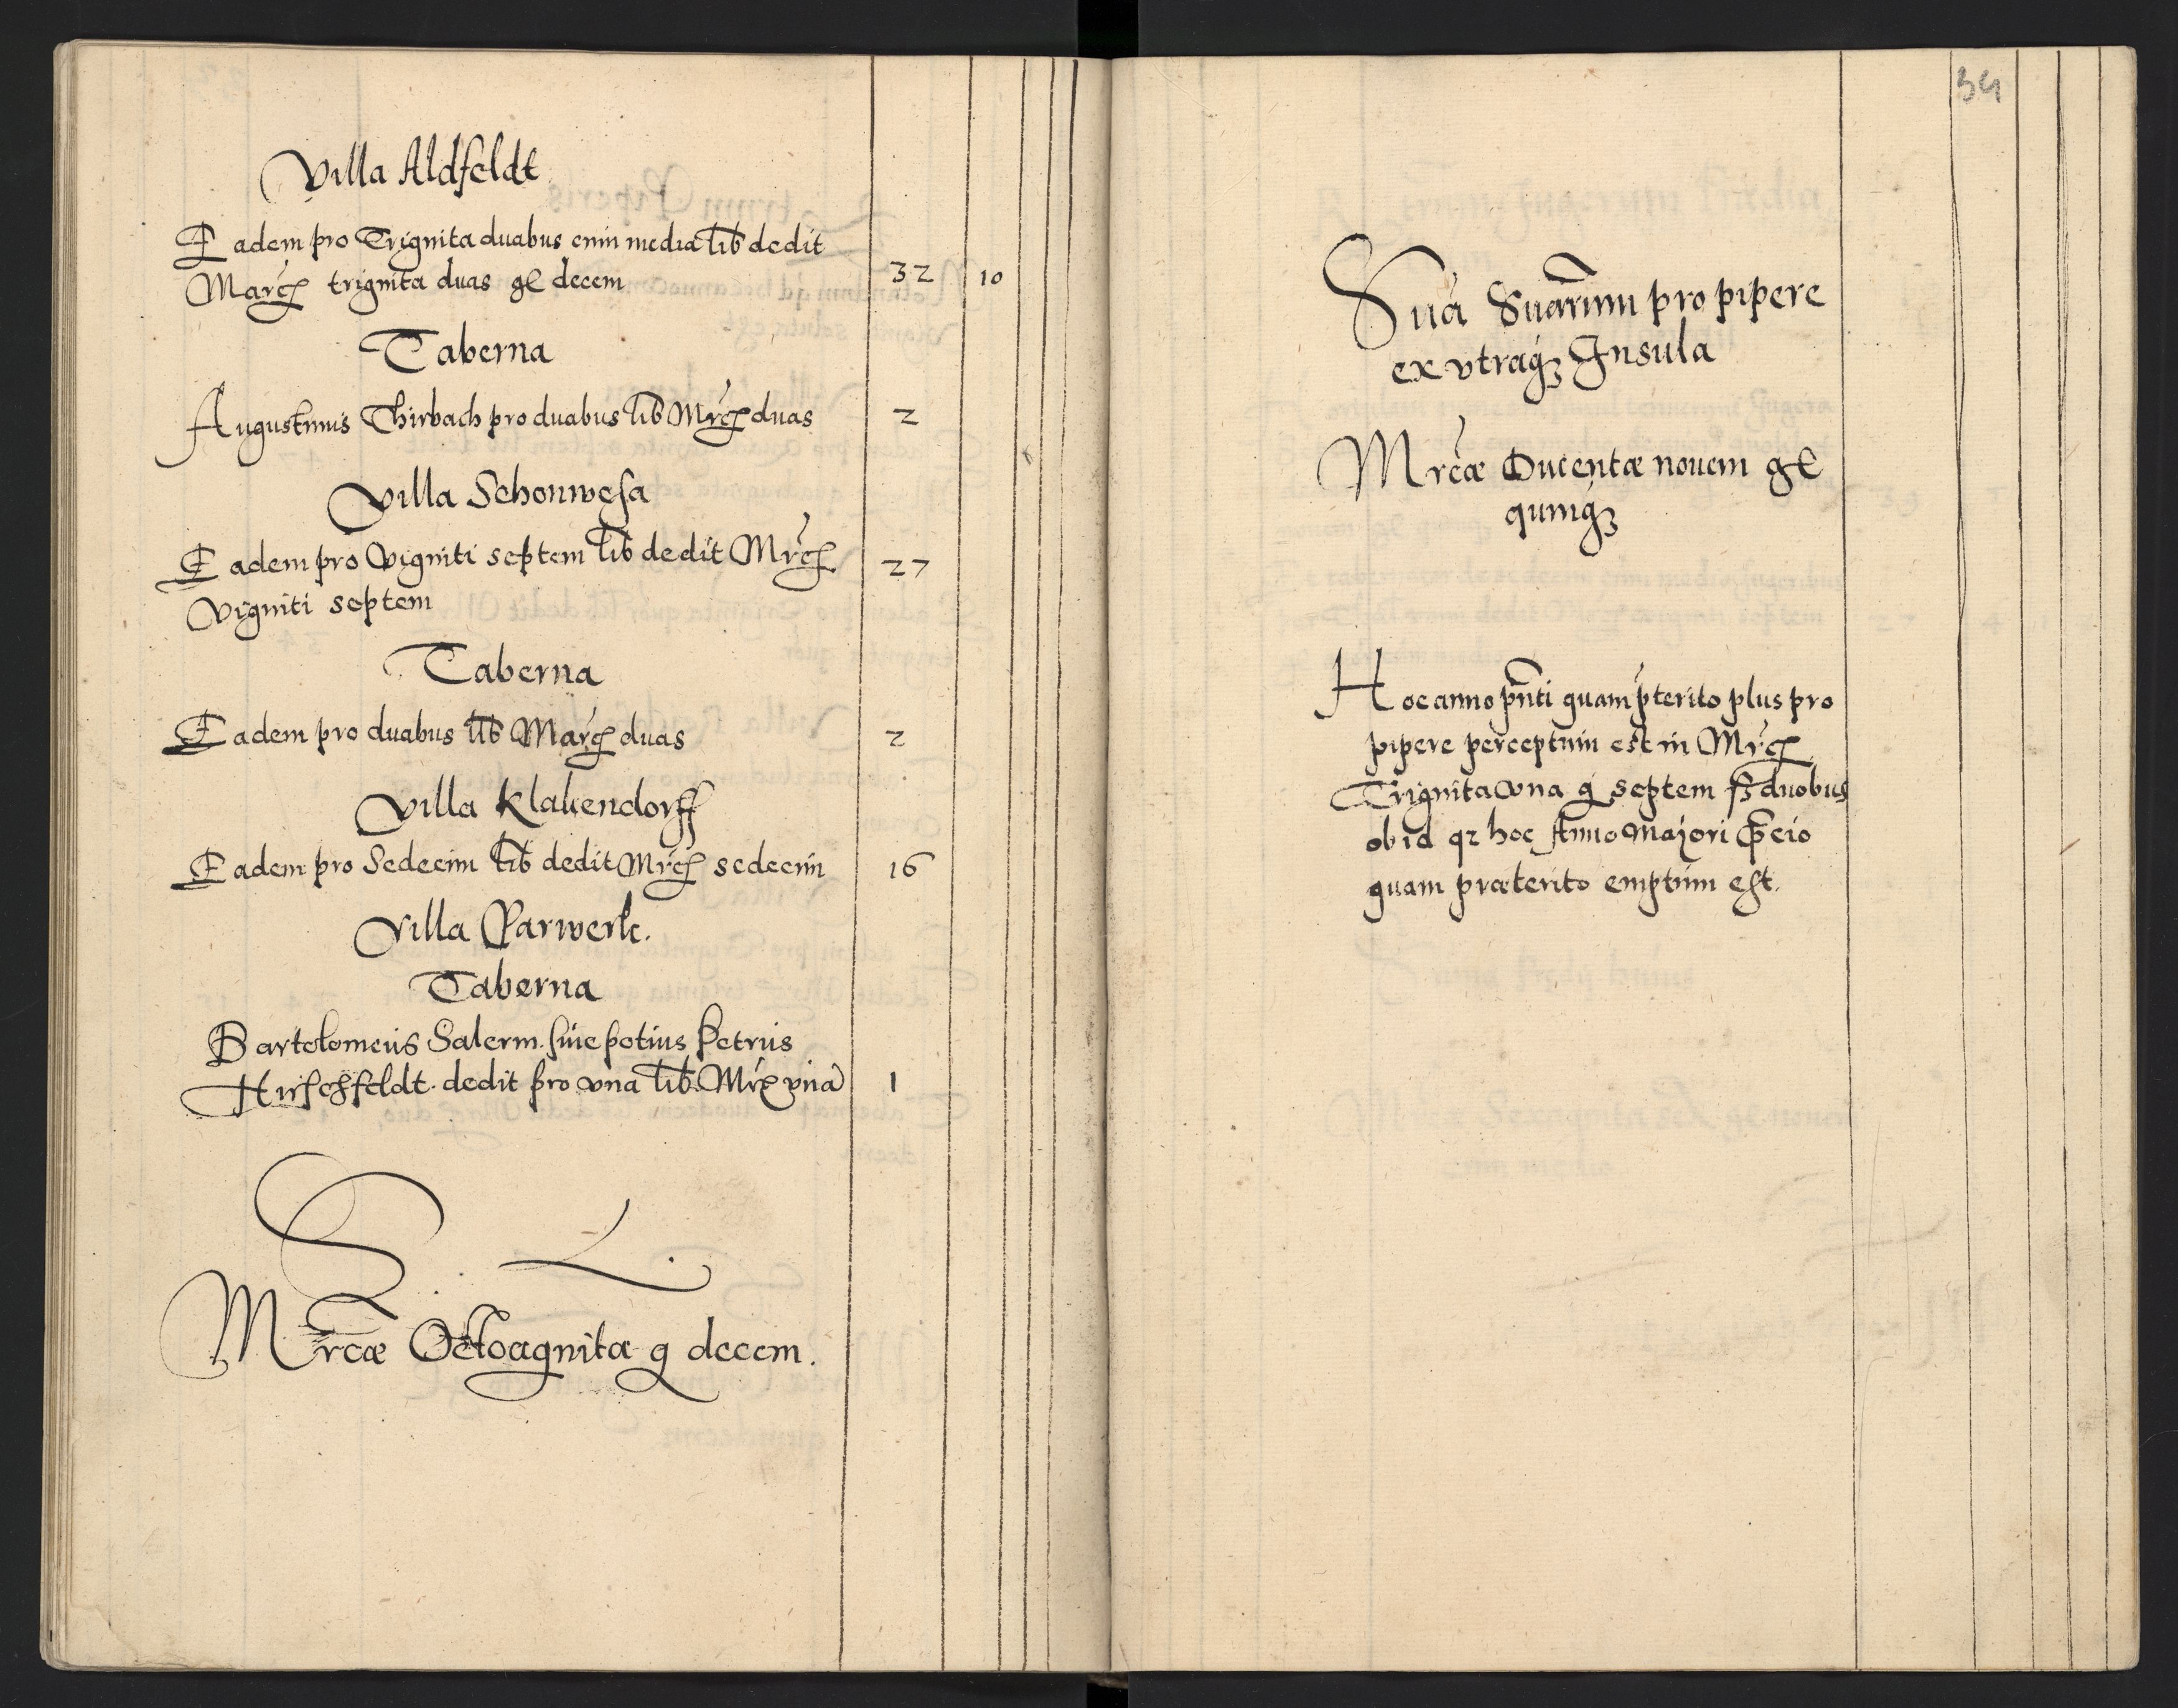 Villa Aldfeldt
Eadem pro Trignita duabus cum media lib dedit
Marc trignita duas gl decem 32 10
Taberna
Augustinus Thirbach pro duabus lib Mrc duas 2
Villa Schonwesa
Eadem pro Vigniti septem lib dedit Mrc 27
Vigniti septem
Taberna
Eadem pro duabus lib Marc duas 2
Villa Klakendorff
Eadem pro Sedecim lib dedit Mrc sedecim 16
Villa Parwerk.
Taberna
Bartolomeus Salerm. siue potius Petrus
Hirschfeldt. dedit pro vna lib. Mrc vna 1
S. L.
Mrcæ Octoagnita g decem.
34
Sūa Suārum pro pipere
ex vtraq Insula
Mrcæ Ducentæ nouem gl
quinq
Hoc anno pn̄ti quam p̄terito plus pro
pipere perceptum est in Mrc
Trignita vna g septem ſz duobus
ob id qz hoc Anno Majori p̄cio
quam præterito emptum est.